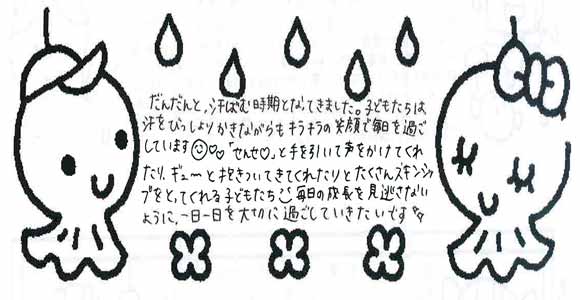 だんだんと、汗ばむ時期となってきました。子どもたちは
汗をびっしょりかきながらもキラキラの笑顔で毎日を過ご
しています☺♡♡「せんせ♡」と手を引いて声をかけてくれ
たり、ギューと抱きついてきてくれたりとたくさんスキンシッ
プをとってくれる子どもたち☺毎日の成長を見逃さない
ように、一日一日を大切に過ごしていきたいです♡♡